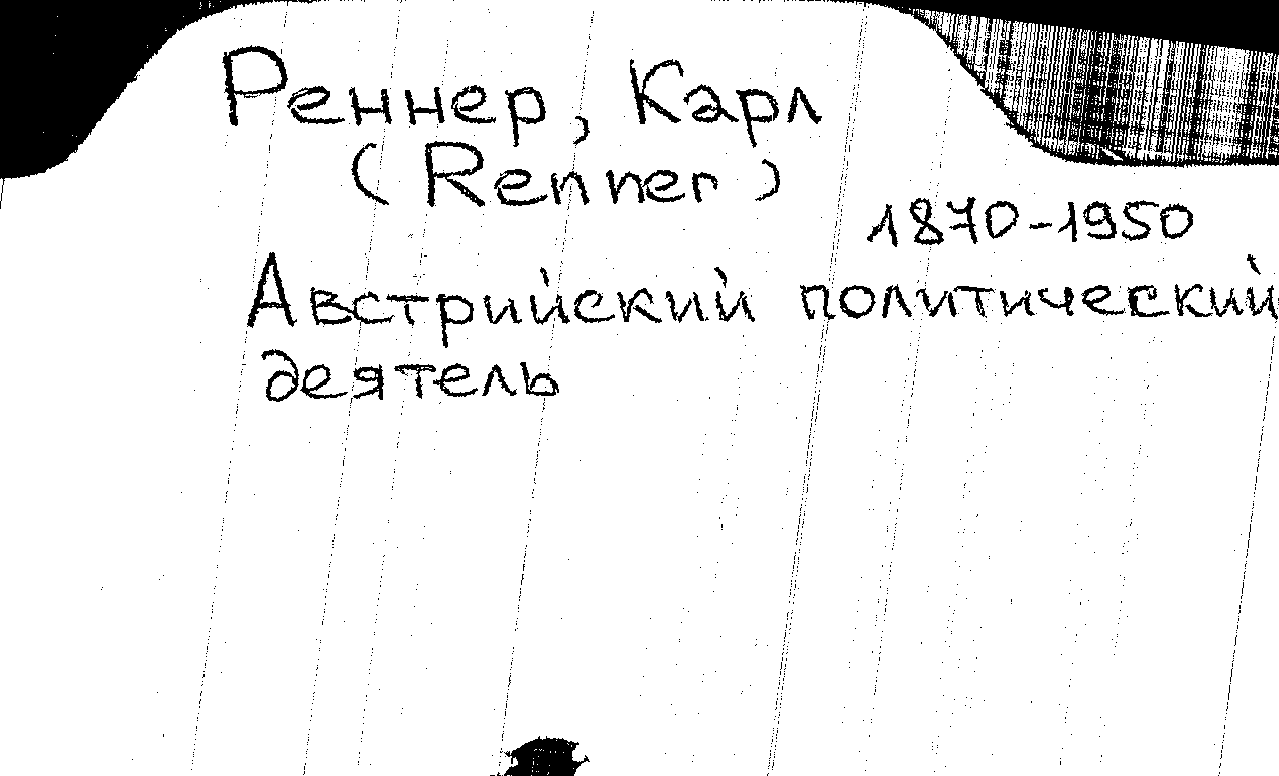 Реннер, Карл
(Renner)
1870-1950
Австрийский политический
деятель